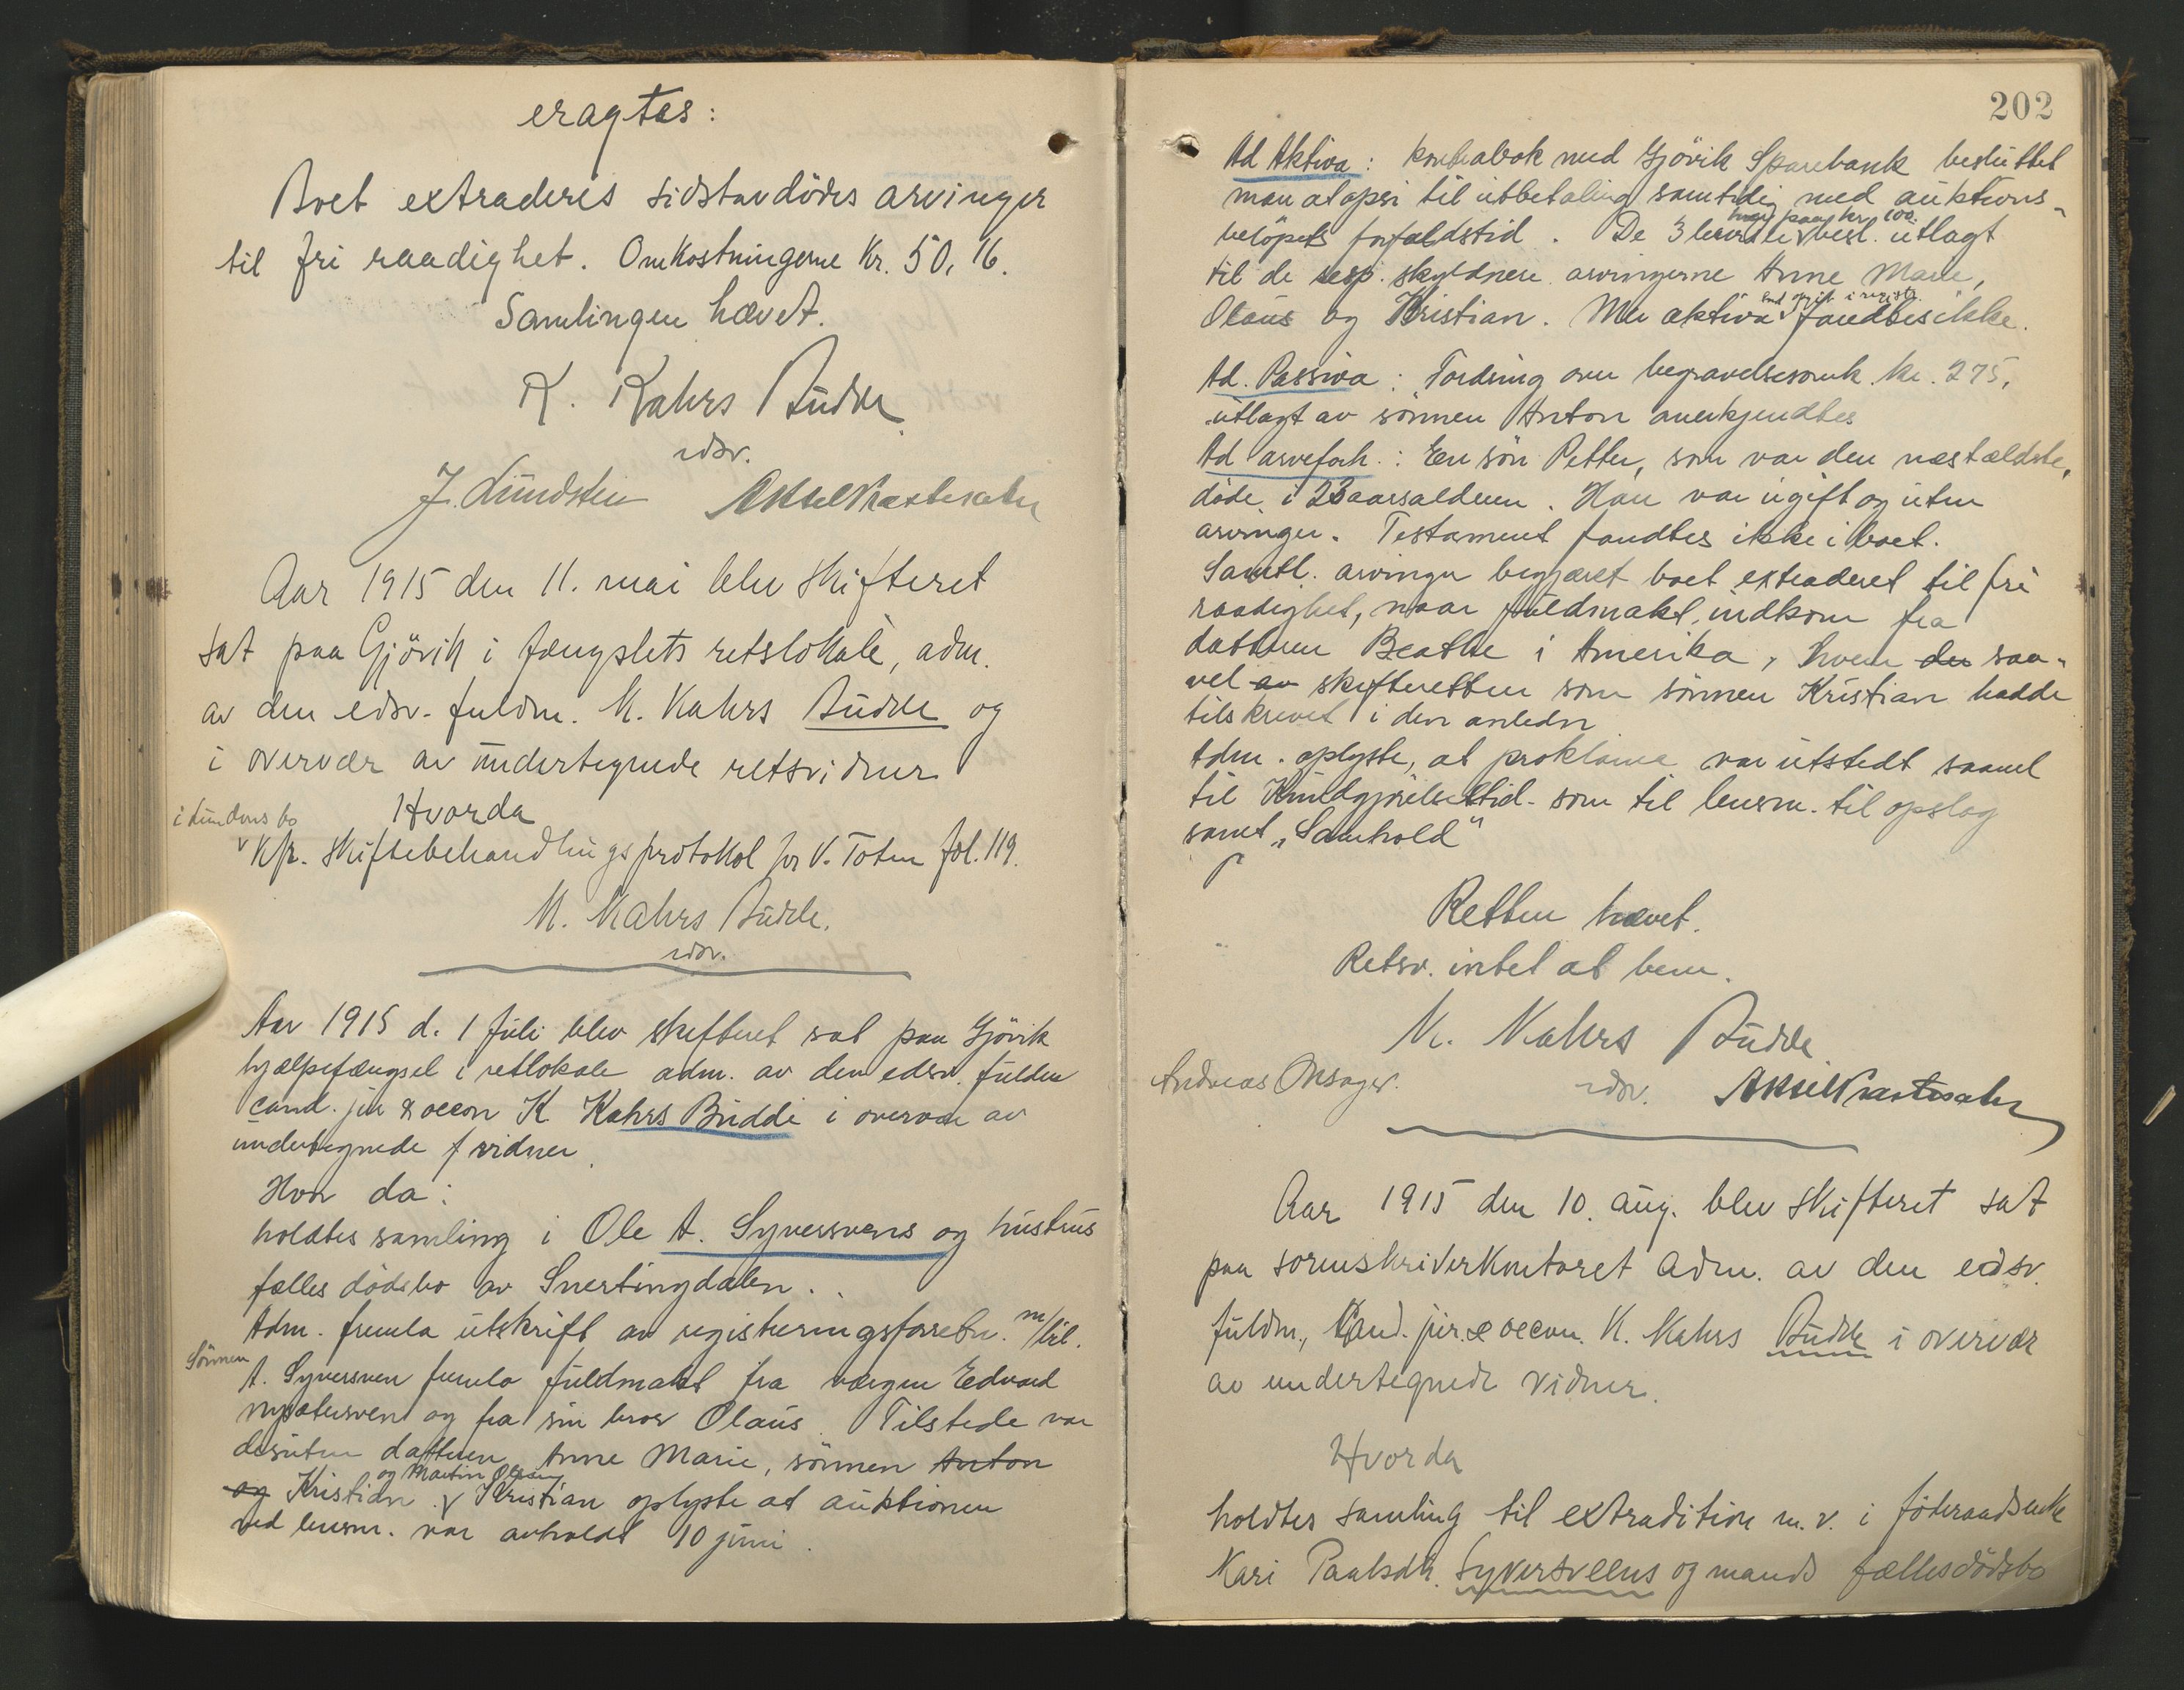 eragtes:
Boet extraderes sidstavdödes arvinger
til fri raadighet. Omkostningerne Kr. 50,16.
Samlingen hævet.
K. Kahrs Budde
edsv.
J. Lundstein Aksel Kastesater
Aar 1915 den 11. mai blev skifteret
sat paa Gjövik i fængslets retslokale, adm.
av den edsv. fuldm. K. Kahrs Budde og
i overvær av undertegnede retsvidner
Hvorda
i Lundens bo
Kfr. skiftebehandlingsprotokol for V. Toten fol. 119.
K. Kahrs Budde.
edsv.
Aar 1915 d. 1 juli blev skifteret sat paa Gjövik
hjælpefængsel i retlokale adm. av den edsv. fuldm
cand. jur & oecon K. Kahrs Budde i overvær av
undertegnede vidner.
Hvor da:
holdtes samling i Ole A. Syversvens og hustrus
fælles dödsbo av Snertingdalen.
Adm. fremla utskrift av registreringsforretn. m/bil.
Sönnen
A. Syversven fremla fuldmakt fra vergen Edvard
og fra sin bror Olaus. Tilstede var
desuten datteren Anne Marie, sönnen Anton
og Martin Olsen
og Kristian. Kristian oplyste at auktionen
ved lensm. var avholdt 10 juni.
202
Ad Aktiva: kontrabok med Gjövik Sparebank besluttet
man at opsi til utbetaling samtidig med auktions-
hver paa kr 100
belöpets forfaldstid. De 3 besl. utlagt
til de resp. skyldnere arvingerne Anne Marie,
end opgit i registr.
Olaus og Kristian. Mer aktiva fandtes ikke.
Ad. Passiva: Fordring over begravelsesomk. kr. 275,
utlagt av sönnen Anton anerkjendtes
Ad arveforh.: En sön Petter, som var den næstældste,
döde i 23 aarsalderen. Han var ugift og uten
arvinger. Testament fandtes ikke i boet.
Samtl. arvinger begjæret boet extraderet til fri
raadighet, naar fuldmakt indkom fra
datteren Beathe i Amerika, hvem der saa-
vel av skifteretten som sönnen Kristian hadde
tilskrevet i den anledn
Adm. oplyste, at proklama var utstedt saavel
til Kundgjörelsestid. som til lensm. til opslag
samt „Samhold"
Retten hævet.
Retsv. intet at bem.
K. Kahrs Budde.
Andreas Onsager. edsv. Aksel Kastesater
Aar 1915 den 10. aug. blev skifteret sat
paa sorenskriverkontoret adm. av den edsv.
fuldm., Cand. jur. & oecon. K. Kahrs Budde i overvær
av undertegnede vidner.
Hvorda
holdtes samling til extradition m.v. i föderaadsenke
Kari Paulsdtr. Syversveens og mands fællesdödsbo